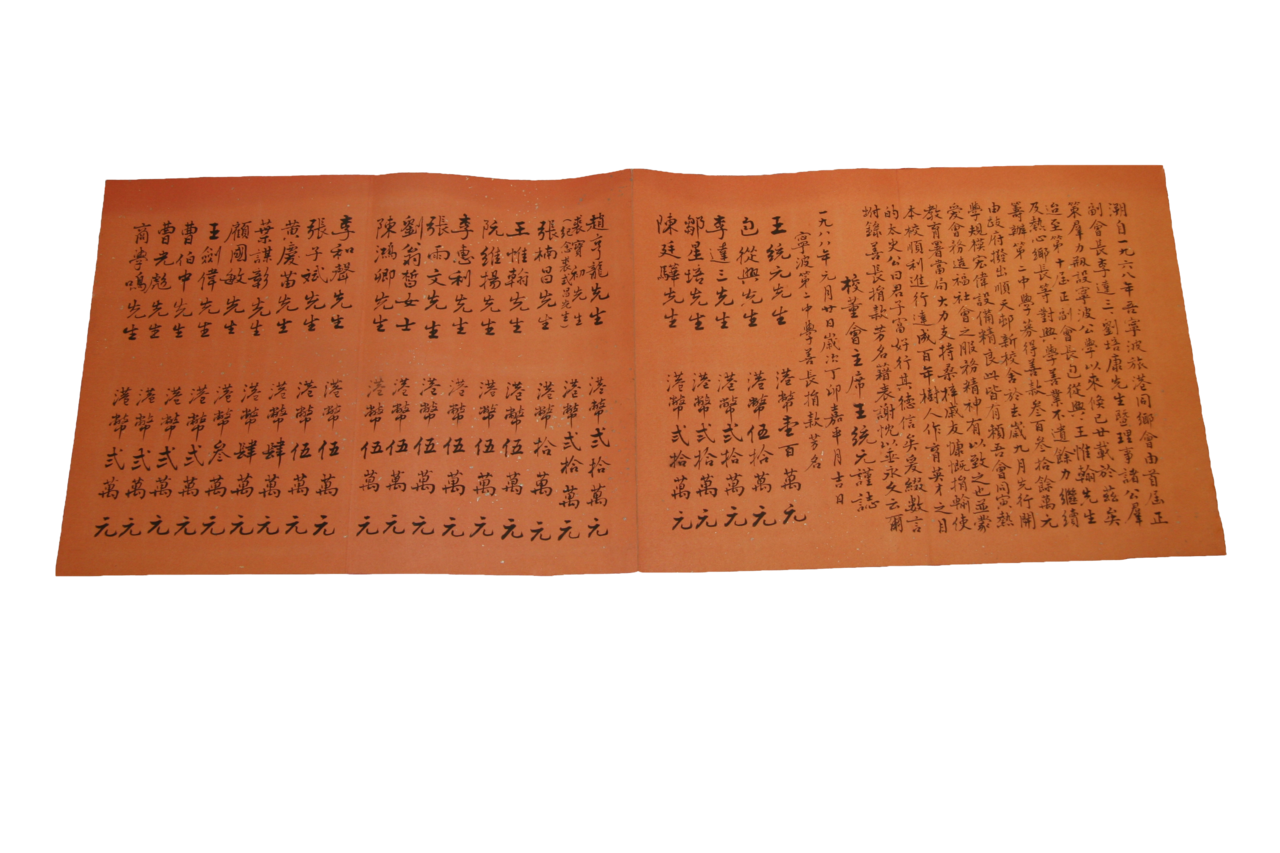 溯自一九六八年吾寧波旅港同鄉會由首屆正
副會長李達三劉培康先生暨理事諸公羣
策羣力刱設寧波公學以來倏已廿載於茲矣
迨至第十屆正副會長包從興王惟翰先生
及熱心鄉長等對興學善業不遺餘力繼續
籌辦第二中學募得善款叁百叁拾餘萬元
由政府撥出順天邨新校舍於去歲九月先行開
學規模宏偉設備精良此皆有賴吾會同寅熱
愛會務造福社會之服務精神有以致之也並蒙
教育署當局大力支持桑梓戚友慷慨捐輸使
本校順利進行達成百年樹人作育英才之目
的太史公曰君子富好行其德信矣爰綴數言
坿錄善長捐款芳名籍表謝忱以並永文云爾
校董會主席王統元謹誌
一九八八年元月廿日歲次丁卯嘉平月吉日
寧波第二中學善長捐款芳名
王統元先生 港幣壹百萬元
包從興先生 港幣伍拾萬元
李達三先生 港幣弍拾萬元
鄒星培先生 港幣弍拾萬元
陳廷驊先生 港幣弍拾萬元
趙亨龍先生 港幣弍拾萬元
裘寶初先生 港幣弍拾萬元
(紀念裘武吕先生)
張楠昌先生 港幣拾萬元
王惟翰先生 港幣伍萬元
阮維揚先生 港幣伍萬元
李惠利先生 港幣伍萬元
張雨文先生 港幣伍萬元
劉翁晢女士 港幣伍萬元
陳鴻卿先生 港幣伍萬元
李和聲先生 港幣伍萬元
張子斌先生 港幣伍萬元
黃慶苗先生 港幣肆萬元
葉謀彰先生 港幣肆萬元
顧國敏先生 港幣叁萬元
王劍偉先生 港幣弍萬元
曹伯中先生 港幣弍萬元
曹光彪先生 港幣弍萬元
商學鳴先生 港幣弍萬元